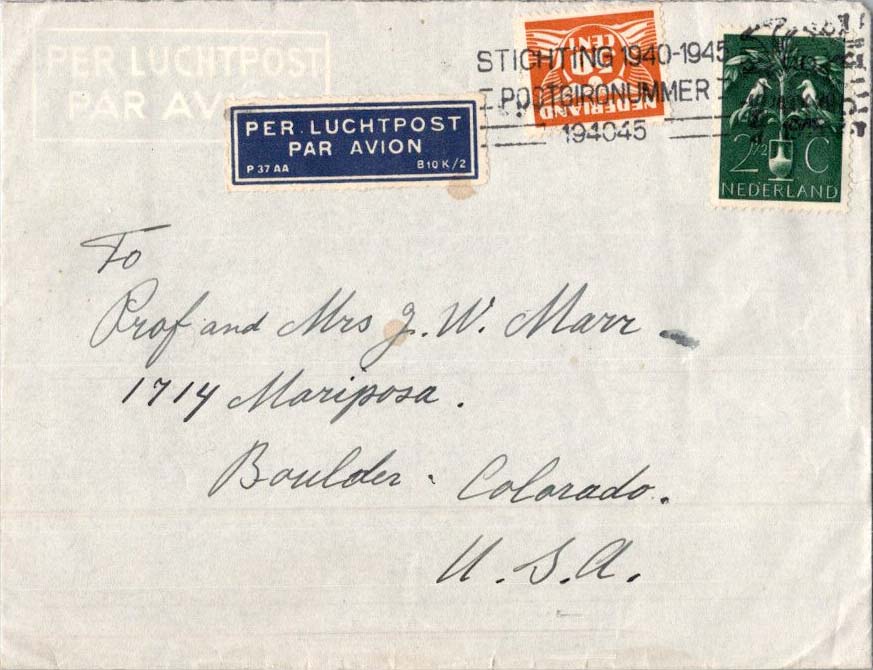 PER LUCHTPOST
PAR AV
STICHTING 1940-1945
POSTGIRONUMMER
194045
50
CENT
NEDERLAND
2½ C
NEDERLAND
PER LUCHTPOST
PAR AVION
P 37 AA B10K/2
To
Prof and Mrs J. W. Marr
1714 Mariposa.
Boulder. Colorado.
U. S. A.